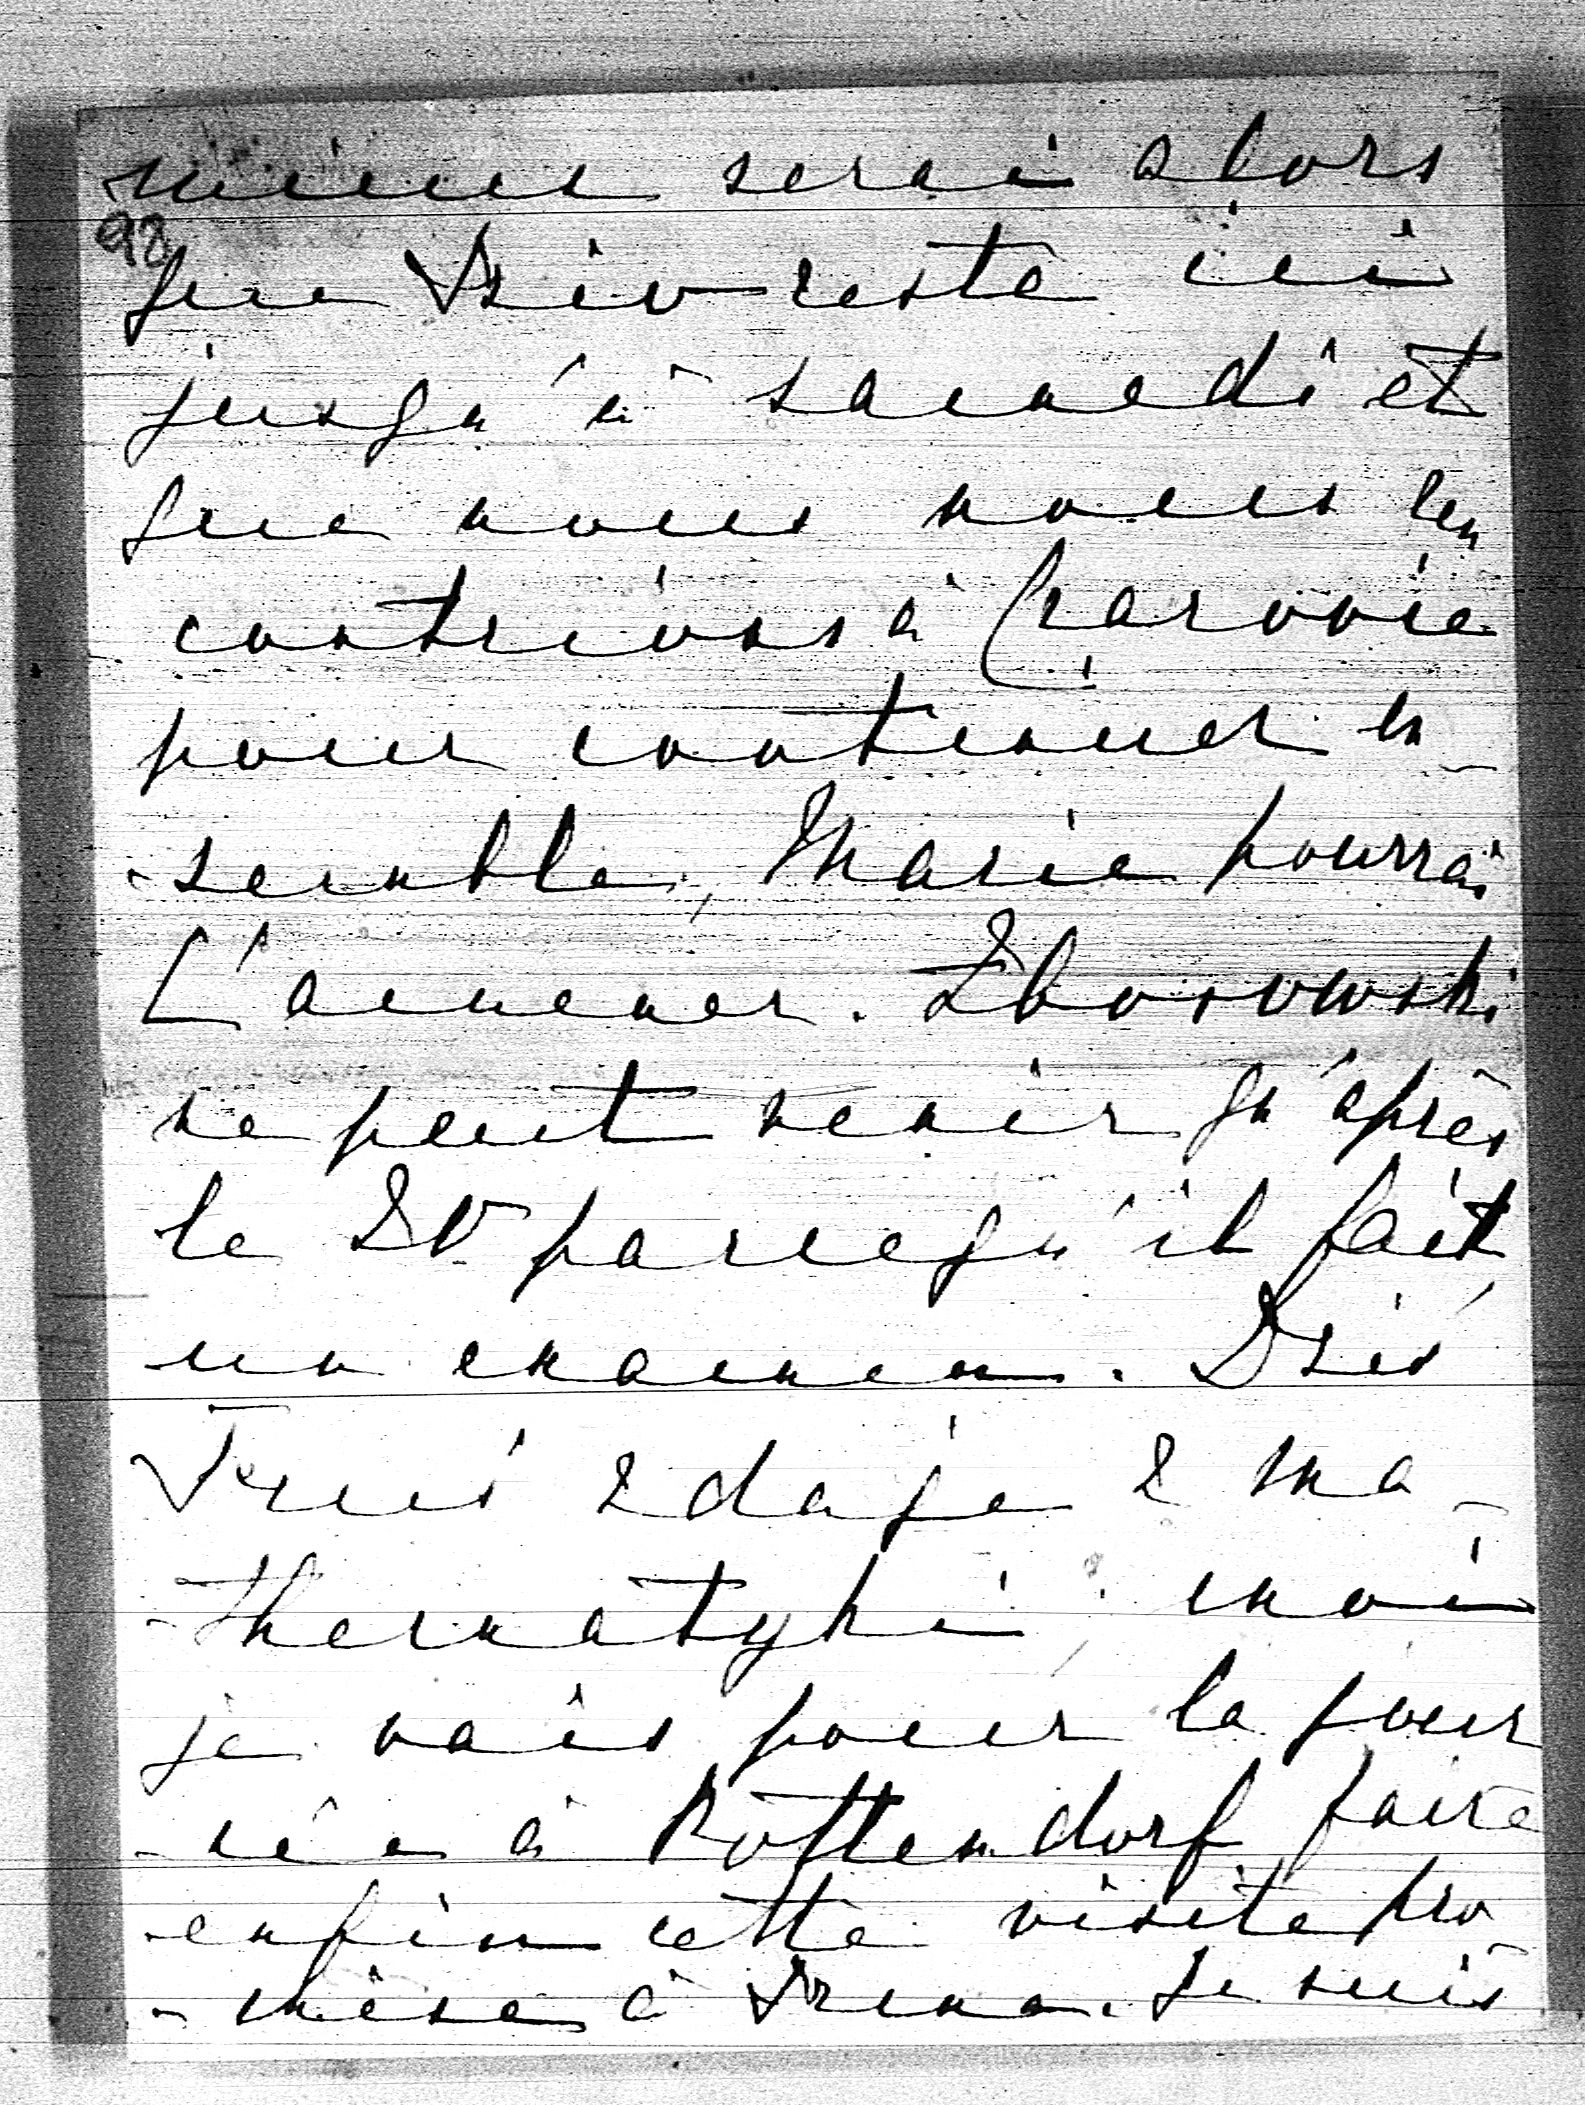 mieux serai alors
98
que Dzio reste ici
jusqu'à samedi et
que nous nous ren
contrions à Cracovie
pour continuer en-
-semble, Marie pourrai
l'amener. Zborowski
ne peut venir qu'après
le 20 parcequ'il fait
un examen. Dziś
Truś zdaje z ma-
-thematyki, moi
je vais pour la jour
-née à Pottendorf faire
enfin cette visite pro
-mise à Irena. Je suis